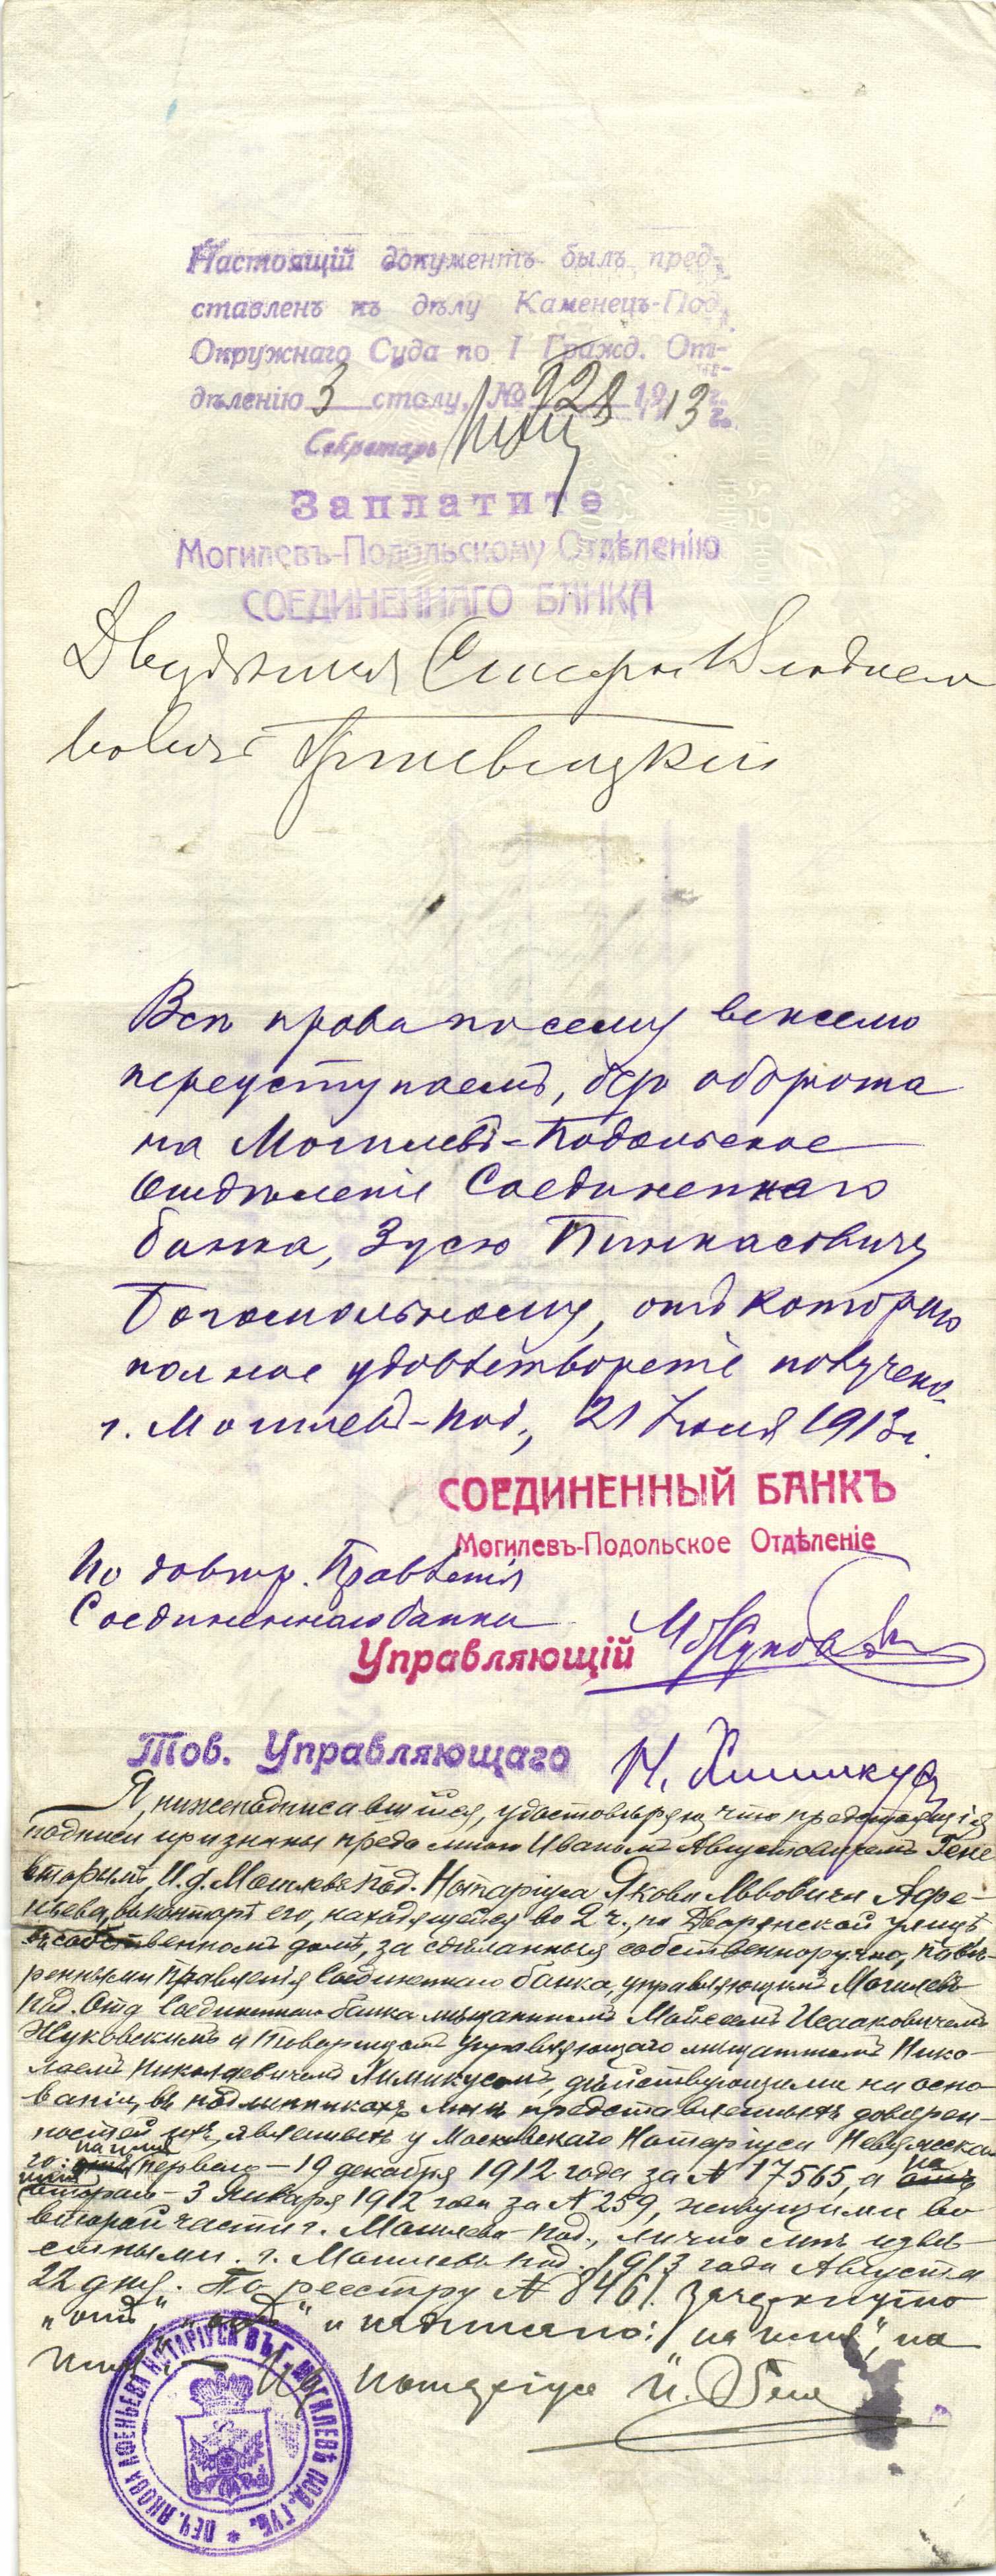 Настоящій документъ былъ пред-
ставленъ къ дѣлу Каменецъ-Под.
Окружнаго Суда по I Гражд. От-
дѣленію 3 столу, № 928 1913 г.
Секретарь
Заплатите
Могилевъ-Подольскому Отдѣленію
СОЕДИНЕННАГО БАНКА
Всѣ права по сему векселю
переуступаемъ, безъ оборота
на Могилевъ-Подольское
Отдѣленіе Соединеннаго
банка, Зусю Пинкасовичу
Богомольному, отъ котораго
полное удовлетвореніе получено.
г. Могилевъ-Под., 21 1913 г.
СОЕДИНЕННЫЙ БАНКЪ
Могилевъ-Подольское Отдѣленіе
По довѣр. Правленія
Соединеннаго банка
Управляющій
Тов. Управляющаго Н. Химикусъ
Я, нижеподписавшійся, удостовѣряю, что предстоящія
подписи признаны предо мною Иваномъ Августовичемъ
И.д. Могилевъ Под. Нотаріуса Якова Львовича Афе-
ньева, въ конторѣ его, находящейся во 2 ч., по Дворянской улицѣ
въ собственномъ домѣ, за сдѣланныя собственноручно, повѣ-
ренными Правленія Соединеннаго банка, управляющимъ Могилевъ
Под. Отд. Соединеннаго банка мѣщаниномъ Мойсеемъ Исааковичемъ
Жуковскимъ и Товарищемъ управляющаго мѣщаниномъ Нико-
лаемъ Николаевичемъ Химикусомъ, дѣйствующими на осно-
ваніи, въ подлинникахъ мнѣ представленныхъ довѣрен-
ностей ихъ, явленныхъ у Московскаго Нотаріуса
на имя на
го: отъ перваго - 19 декабря 1912 года за № 17565, а отъ
имя
втораго - 3 Января 1912 года за № 259, живущими во
второй части г. Могилева Под., лично мнѣ извѣ-
стными. г. Могилевъ Под. 1913 года Августа
22 дня. По реестру № 8461. Зачеркнуто
„отъ", „отъ" и надписано: „на имя", „на
имя". - И.д. нотаріуса И.
ПЕЧ. ЯКОВА АФЕНЬЕВА НОТАРІУСА ВЪ Г. МОГИЛЕВѢ ПОД. ГУБ.